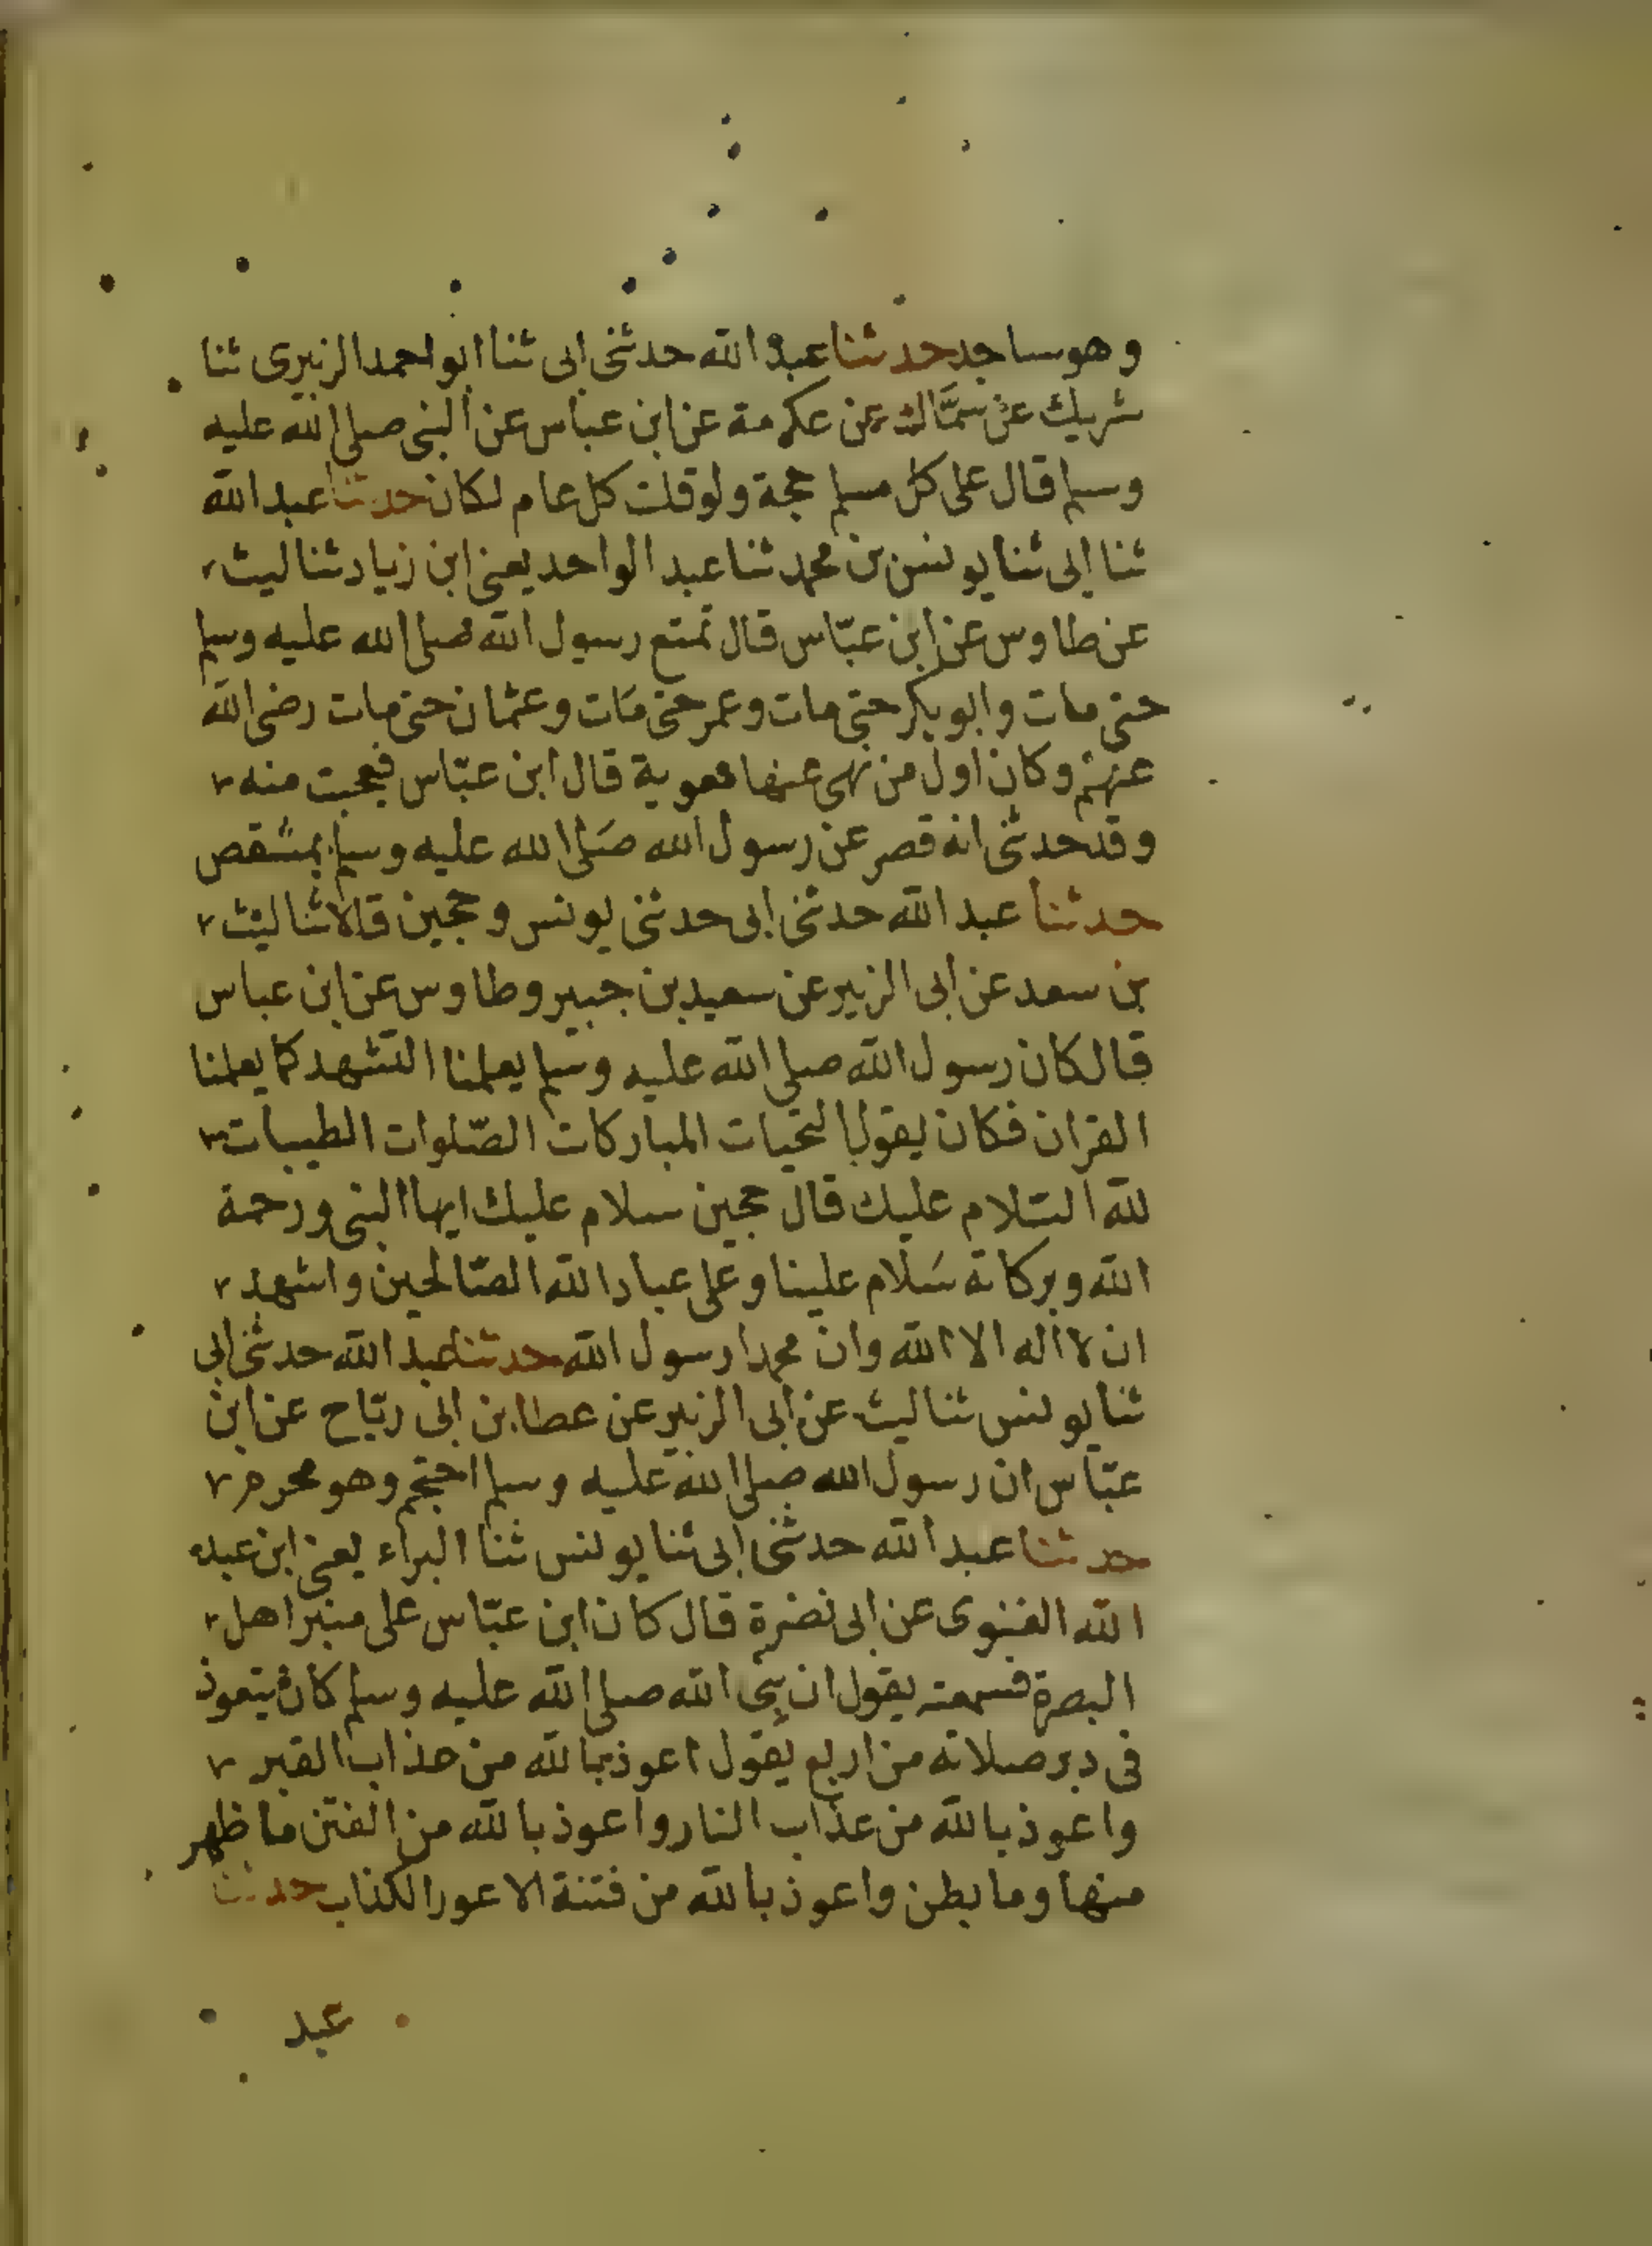 وهو ساجد حدثنا عبد الله حدثنى ابى ثنا ابو احمد الزبيرى ثنا
شريك عن سمّاك عن عكرمة عن ابن عباس عن النبى صلى الله عليه
وسلم قال على كل مسلم حجة ولو قلت كل عام لكان حدثنا عبد الله
ثنا ابى ثنا يونس بن محمد ثنا عبد الواحد يعنى ابن زياد ثنا ليث
عن طاوس عن ابن عبّاس قال تمتع رسول الله صلى الله عليه وسلم
حتى مات وابو بكر حتى مات وعمر حتى مَات وعثمان حتى مات رضى الله
عنهم وكان اول من نهى عنها معوية قال ابن عبّاس فعجبت منه
وقد حدثنى انه قصر عن رسول الله صَلى الله عليه وسلم بمشقص
حدثنا عبد الله حدثنى ابى حدثنى يونس وحجين قالا ثنا ليث
بن سعد عن ابى الزبير عن سعيد بن جبير وطاوس عن ابن عباس
قال كان رسول الله صلى الله عليه وسلم يعلمنا التشهد كما يعلمنا
القران فكان يقول التحيات المباركات الصّلوات الطيبات
لله السّلام عليك قال حجين سلام عليك ايها النبى ورحمة
الله وبركاته سَلام علينا وعلى عباد الله الصّالحين واشهد
ان لا اله الا الله وان محمدا رسول الله حدثنا عبد الله حدثنى ابى
ثنا يونس ثنا ليث عن ابى الزبير عن عطا بن ابى ربّاح عن ابن
عبّاس ان رسول الله صلى الله عليه وسلم احتجم وهو محرم
حدثنا عبد الله حدثنى ابى ثنا يونس ثنا البراء يعنى ابن عبد
الله الغنوى عن ابى نضرة قال كان ابن عبّاس على منبر اهل
البصرة فسمعته يقول ان نبى الله صلى الله عليه وسلم كان يتعوذ
فى دبر صلاته من اربع يقول اعوذ بالله من عذاب القبر
واعوذ بالله من عذاب النار واعوذ بالله من الفتن ما ظهر
منها وما بطن واعوذ بالله من فتنة الاعور الكذاب حدثنا
عبد